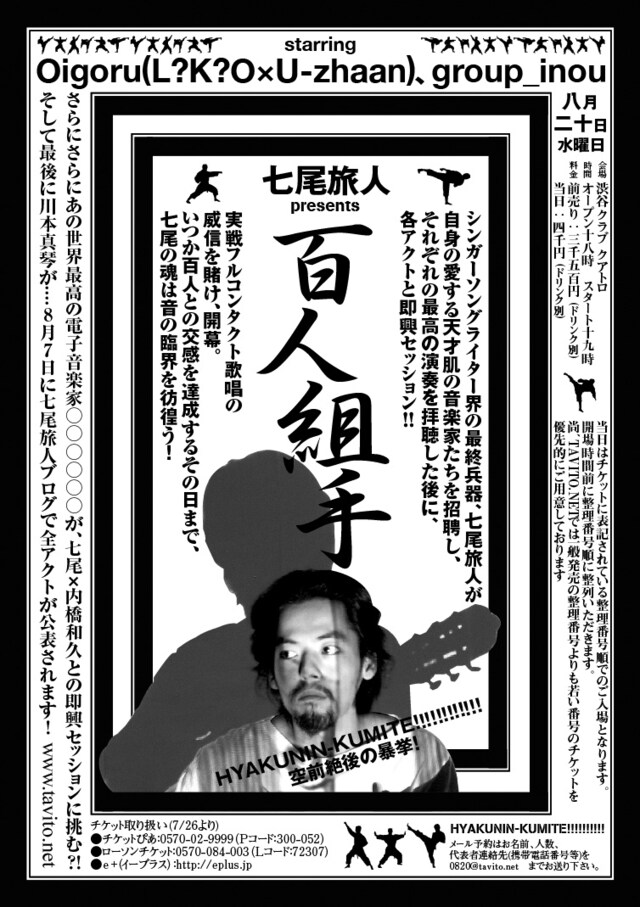 starring
Oigoru(L?K?O×U-zhaan)、group_inou
八月
二十日
水曜日
会場 渋谷クラブ クアトロ
時間 オープン十八時 スタート十九時
料金 前売り：三千五百円（ドリンク別）
当日：四千円（ドリンク別）
当日はチケットに表記されている整理番号順でのご入場となります。
開場時間前に整理番号順に整列いただきます。
尚、TAVITO.NETでは一般発売の整理番号よりも若い番号のチケットを
優先的にご用意しております
七尾旅人
presents
百人組手
シンガーソングライター界の最終兵器、七尾旅人が
自身の愛する天才肌の音楽家たちを招聘し、
それぞれの最高の演奏を拝聴した後に、
各アクトと即興セッション!!
実戦フルコンタクト歌唱の
威信を賭け、開幕。
いつか百人との交感を達成するその日まで、
七尾の魂は音の臨界を彷徨う！
HYAKUNIN-KUMITE!!!!!!!!!!!!
空前絶後の暴挙！
さらにさらにあの世界最高の電子音楽家〇〇〇〇〇〇が、七尾×内橋和久との即興セッションに挑む?!
そして最後に川本真琴が…8月7日に七尾旅人ブログで全アクトが公表されます！ www.tavito.net
チケット取り扱い(7/26より)
●チケットぴあ:0570-02-9999 (Pコード:300-052)
●ローソンチケット:0570-084-003 (Lコード:72307)
●e+(イープラス) :http://eplus.jp
HYAKUNIN-KUMITE!!!!!!!!!!
メール予約はお名前、人数、
代表者連絡先(携帯電話番号等)を
0820@tavito.net までお送り下さい。